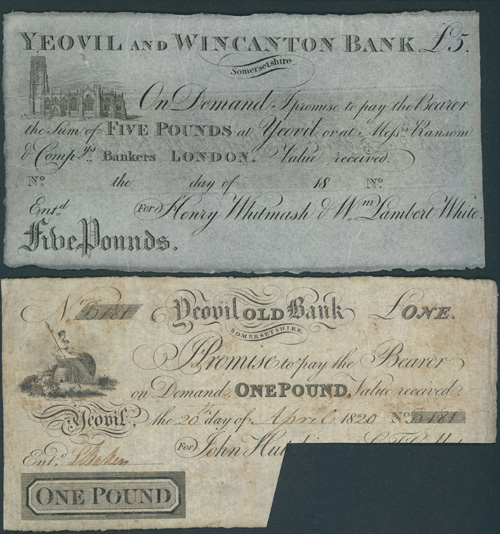 YEOVIL AND WINCANTON BANK £5.
Somersetshire.
On Demand I promise to pay the Bearer
the Sum of FIVE POUNDS at Yeovil or at Mess.rs Ransom
& Comp.ys Bankers LONDON. Value received.
No. the day of 18 No.
Ent.d (For) Henry Whitmash & W.m Lambert White.
Five Pounds.
No. 5181 Yeovil OLD Bank £ONE.
SOMERSETSHIRE.
I Promise to pay the Bearer
on Demand, ONE POUND. Value received.
Yeovil, the 20th day of April 1820 No. 5181
Ent.d (For) John
ONE POUND